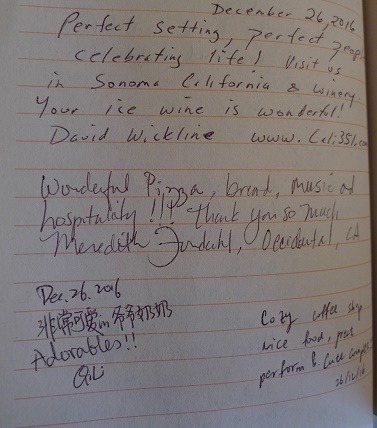 December 26, 2016
Perfect setting, perfect peop
celebrating life! Visit us
in Sonoma California & winery
Your ice wine is wonderful!
David Wickline www.Cali351.com
Wonderful Pizza, bread, music and
hospitality!!! Thank you so much
Meredith Occidental, CA
Dec. 26. 2016
非常可爱in爷爷奶奶
Adorables!!
QiLi
Cozy coffee shop
nice food, great
perform & Cute
26/12/16